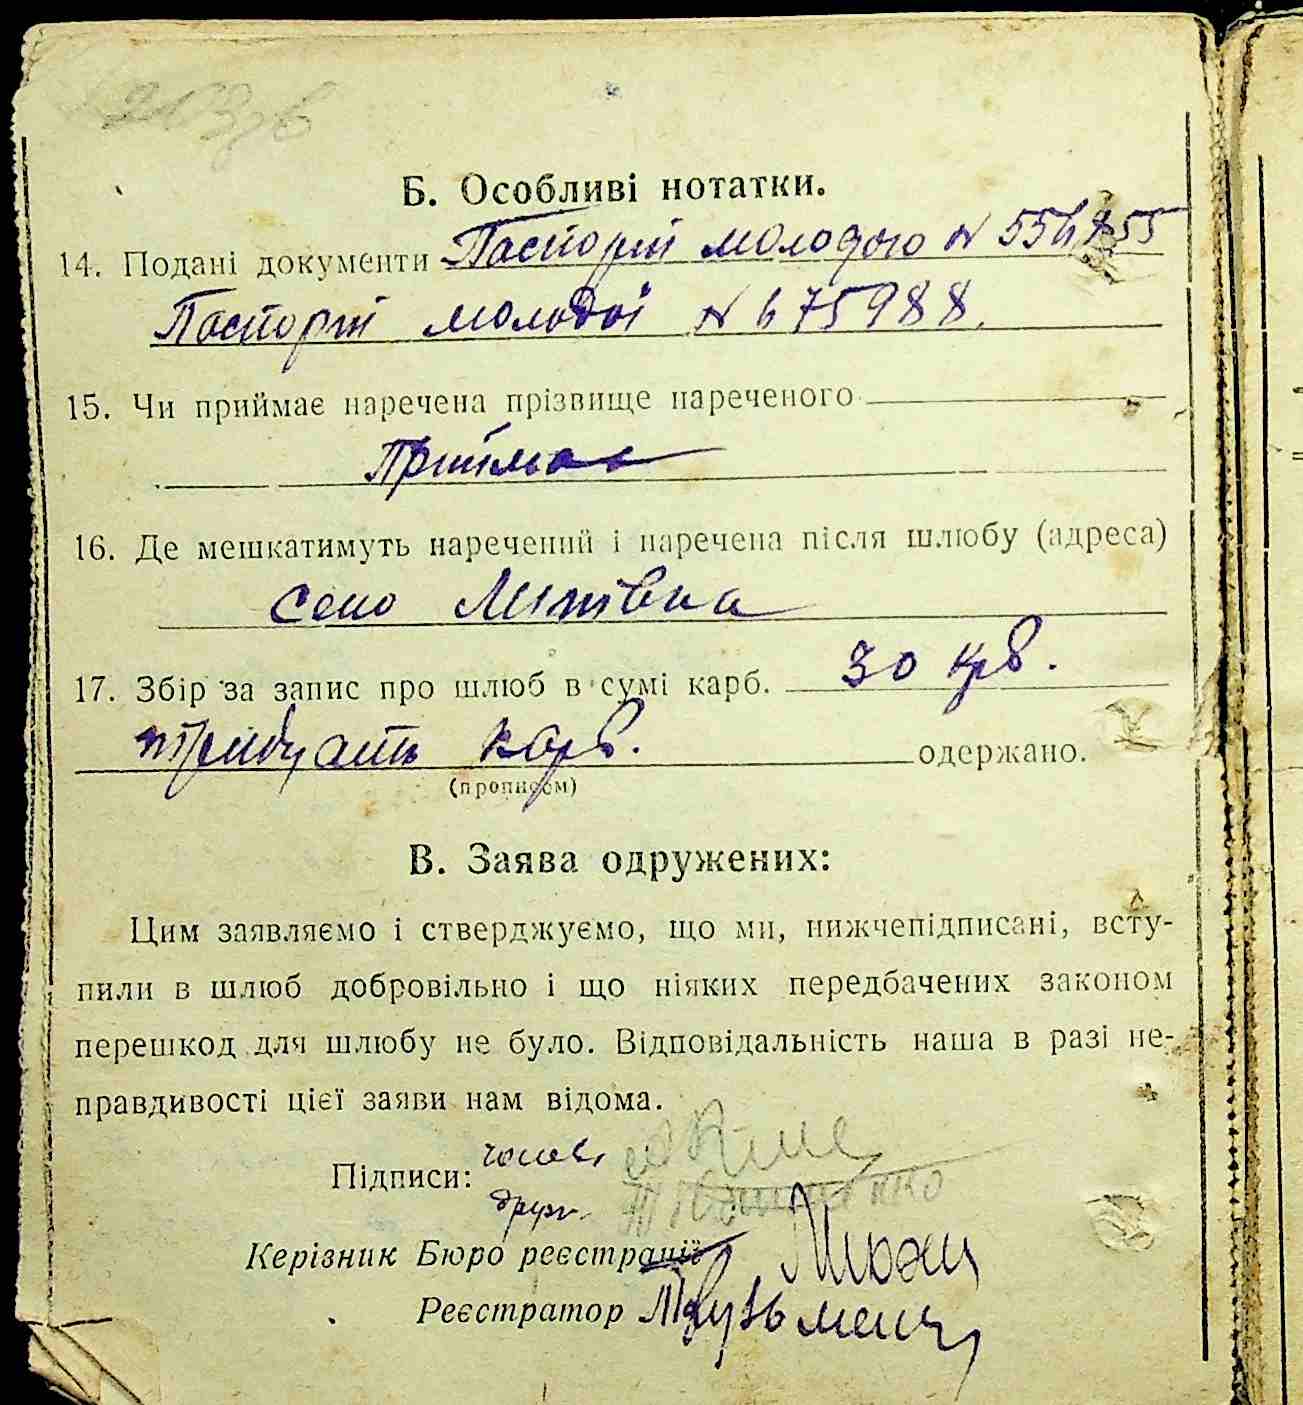 Б. Особливі нотатки.
14. Подані документи Паспорт молодого N
Паспорт молодої N 675988.
15. Чи приймає наречена прізвище нареченого
Приймає
16. Де мешкатимуть наречений і наречена після шлюбу (адреса)
село Липівка
17. Збір за запис про шлюб в сумі карб. 30 крб.
тридцать карб. одержано.
(прописом)
В. Заява одружених:
Цим заявляємо і стверджуємо, що ми, нижчепідписані, всту-
пили в шлюб добровільно і що ніяких передбачених законом
перешкод для шлюбу не було. Відповідальність наша в разі не-
правдивості цієї заяви нам відома.
Підписи:
друж.
Керізник Бюро реєстрації
Реєстратор